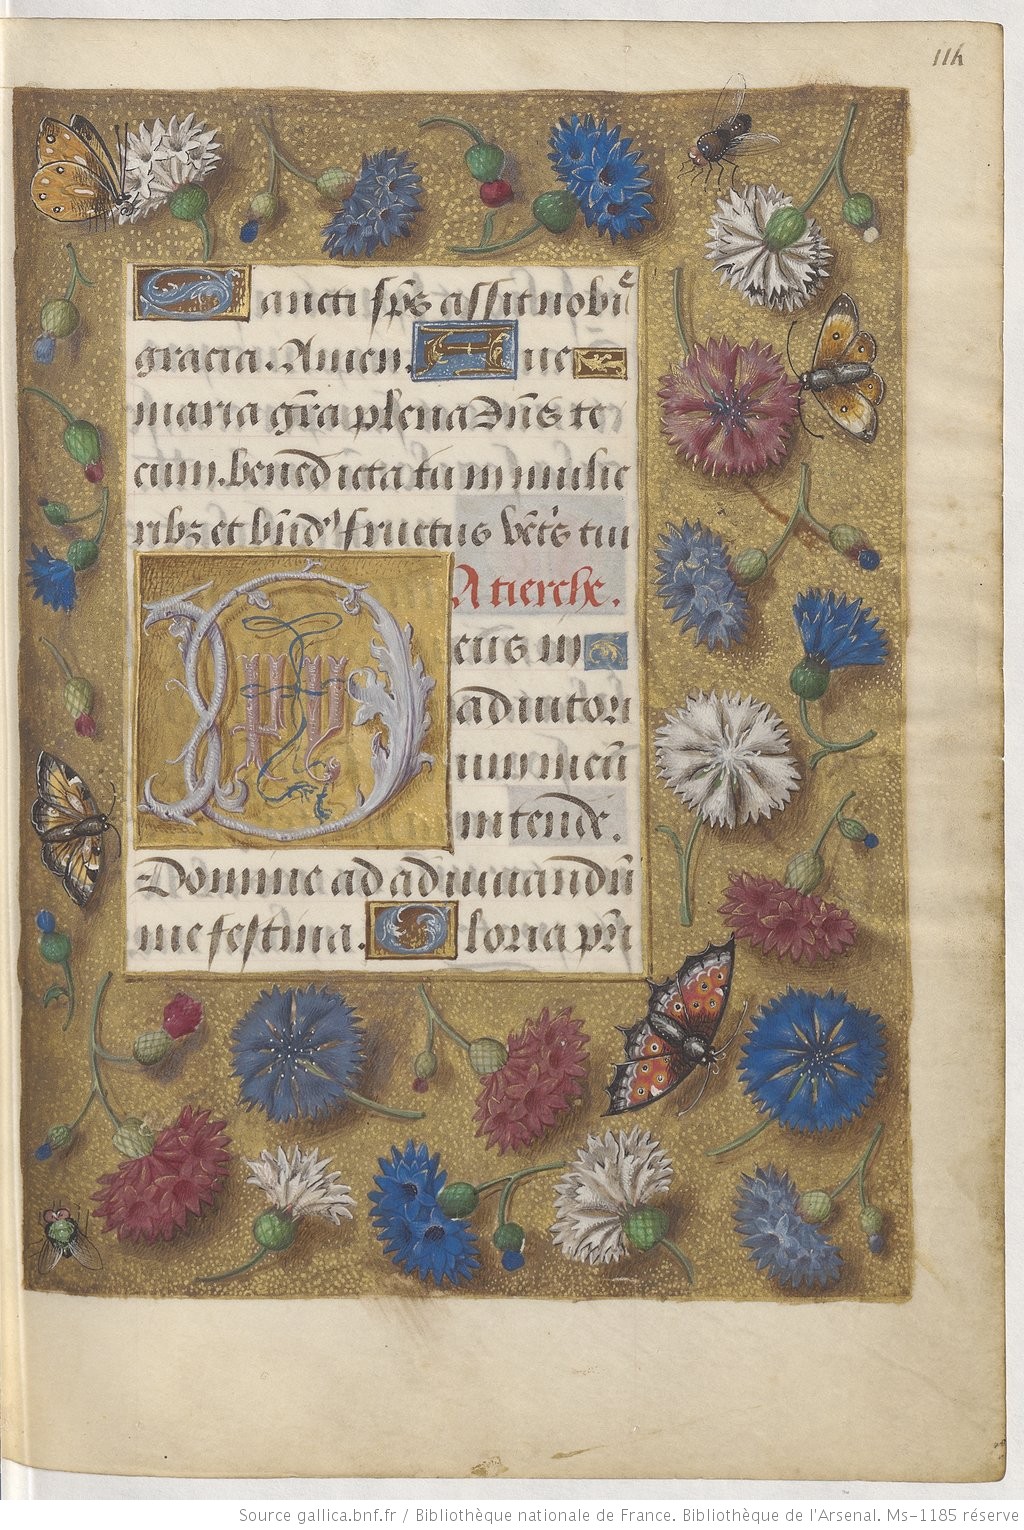 114
Sancti sp̃s assit nobis
gracia. Amen. Aue
maria gr̃a plena Dñs te
cum. benedicta tu in mulie
ribz et bñd' fructus vẽtris tui
A tierche.
Deus in
adiutori
um meũ
intende.
Domine ad adiuuandũ
me festina. Gloria pr̃i
Source gallica.bnf.fr / Bibliothèque nationale de France. Bibliothèque de l'Arsenal. Ms-1185 réserve